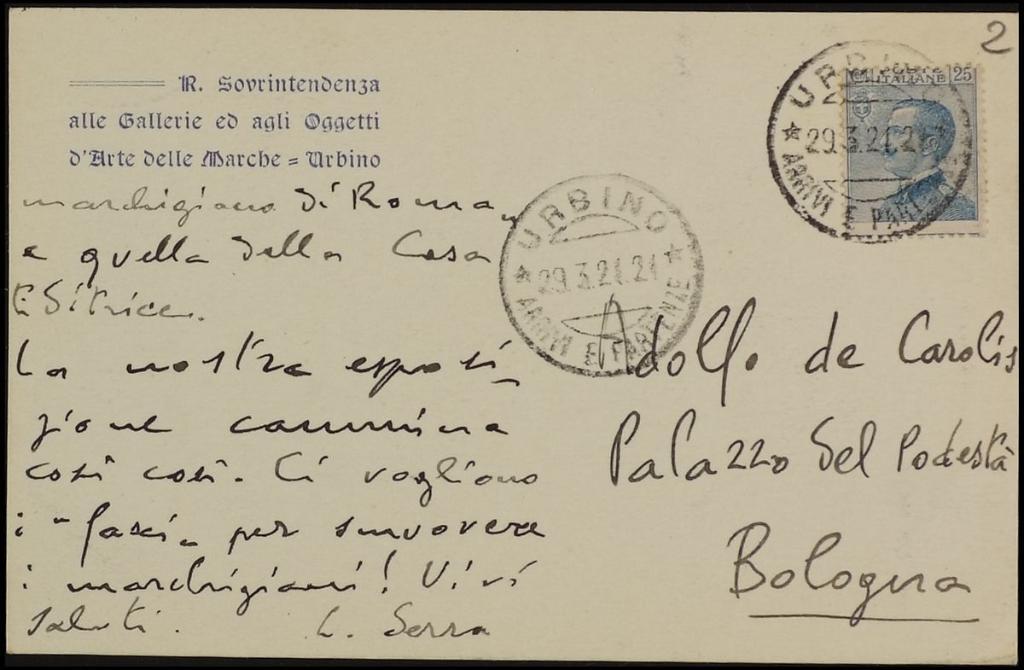 2
R. Sovrintendenza
alle Gallerie ed agli Oggetti
d'Arte delle Marche = Urbino
marchigiano di Roma,
e quella della Casa
Editrice.
La nostra esposi-
zione cammina
così così. Ci vogliono
i "fasci" per smuovere
i marchigiani! Vivi
saluti. L. Serra
URBINO
29.3.21.21
ARRIVI E PARTENZE
URBINO
29.3.21.21
ARRIVI E PARTENZE
POSTE ITALIANE 25
Adolfo de Carolis
Palazzo del Podestà
Bologna